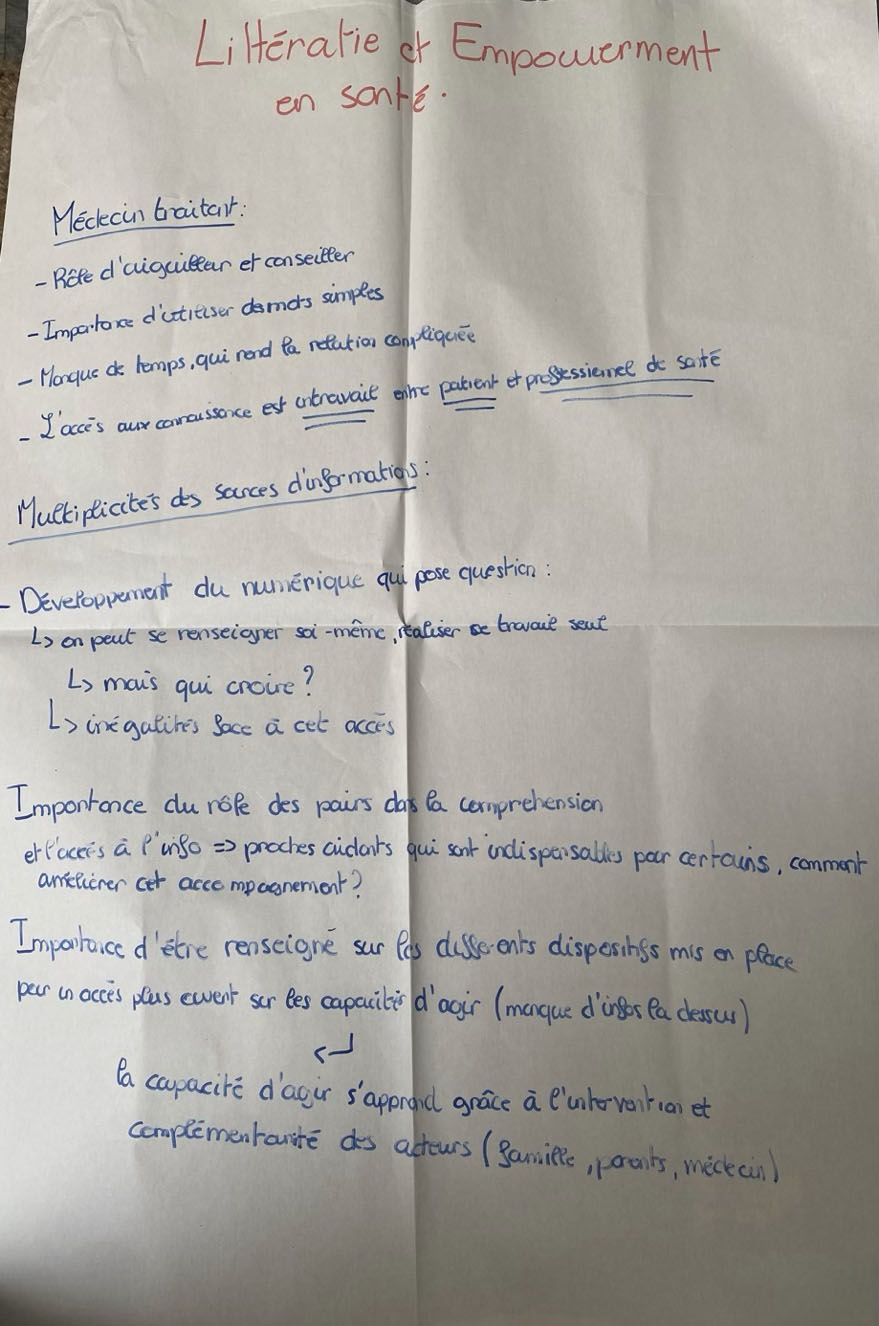 Littératie et Empowerment
en santé.
Médecin traitant:
- Rôle d'aiguilleur et conseiller
- Importance d'utiliser des mots simples
- Manque de temps, qui rend la relation compliquée
- L'accès aux connaissance est un travail entre patient et professionnel de santé
Multiplicités des sources d'informations:
- Développement du numérique qui pose question:
↳ on peut se renseigner soi-même, réaliser ce travail seul
↳ mais qui croire?
↳ inégalités face à cet accès
Importance du rôle des pairs dans la comprehension
et l'accès à l'info => proches aidants qui sont indispensables pour certains, comment
améliorer cet accompagnement?
Importance d'être renseigné sur les différents dispositifs mis en place
pour un accès plus ouvert sur les capacités d'agir (manque d'infos la dessus)
↲
la capacité d'agir s'apprend grâce à l'intervention et
complémentarité des acteurs (famille, parents, médecin)